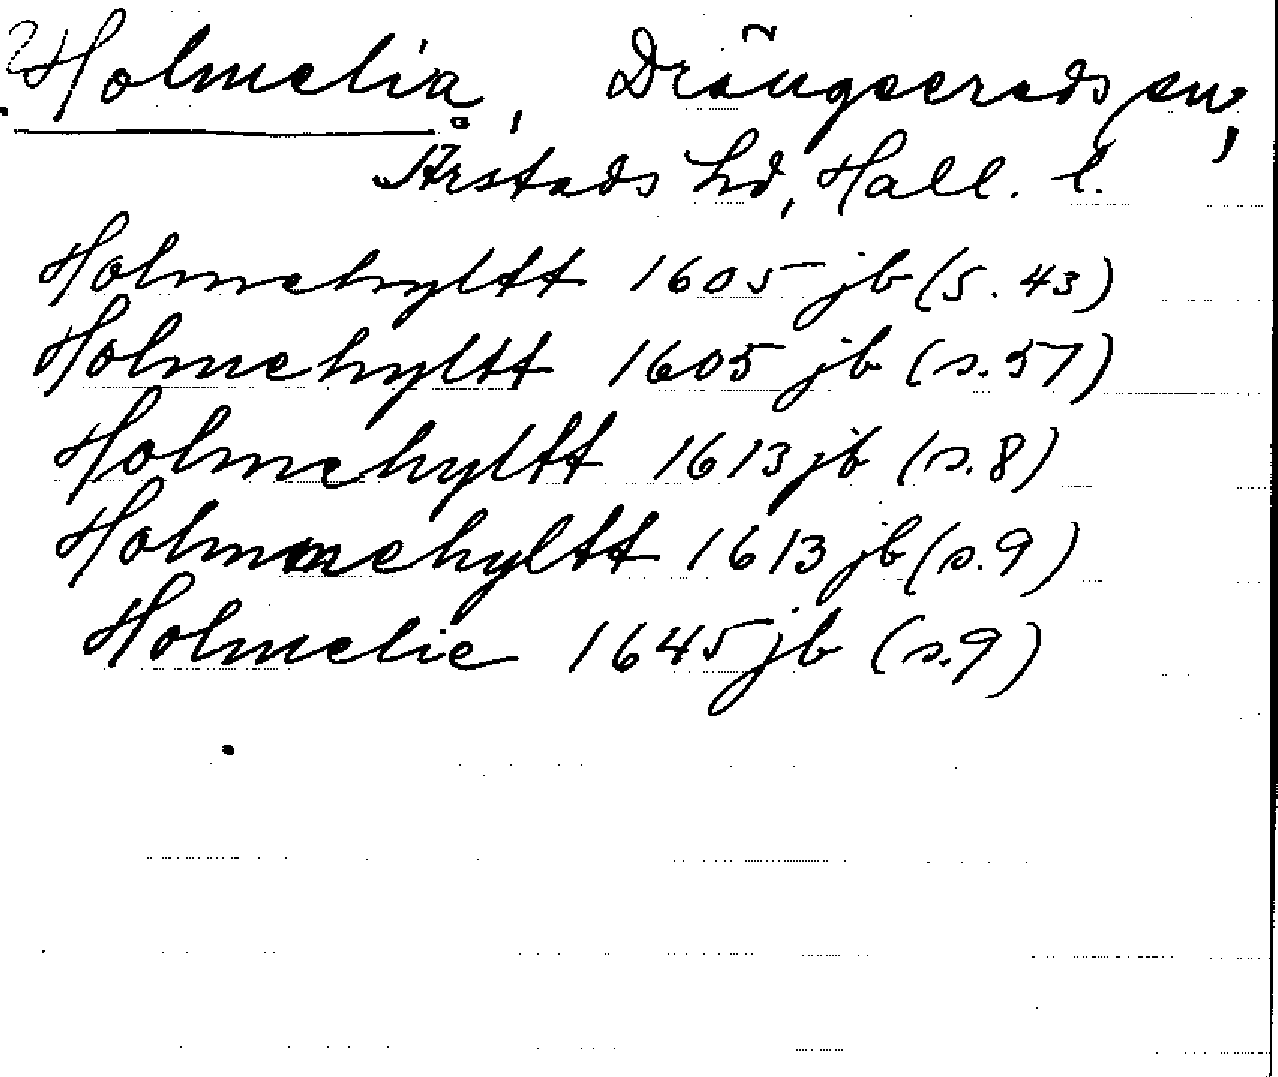 ? Holmelia, Drängsereds sn,
Årstads hd, Hall. l.
Holmehyltt 1605 jb (s. 43)
Holmehyltt 1605 jb (s. 57)
Holmehyltt 1613 jb (s. 8)
Holmmehyltt 1613 jb (s. 9)
Holmelie 1645 jb (s. 9)